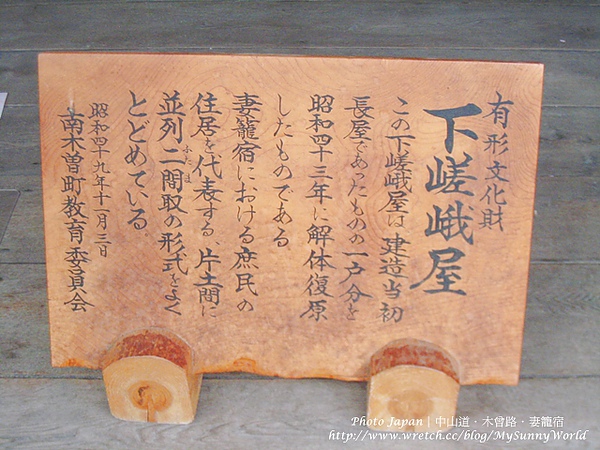 有形文化財
下嵯峨屋
この下嵯峨屋は建造当初
長屋であったものの一戸分を
昭和四十三年に解体復原
したものである
妻籠宿における庶民の
住居を代表する、片土間に
並列二間取の形式をよく
ふたま
とどめている
昭和四十九年十一月三日
南木曽町教育委員会
Photo Japan | 中山道·木曾路·妻籠宿
http://www.wretch.cc/blog/MySunnyWorld